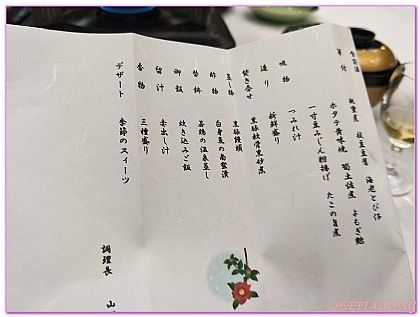 食前酒
枝豆豆腐 海老とび仔
ホタテ黄味焼 筍土佐煮 よもぎ麩
一寸豆みじん粉揚げ たこの旨煮
吸物 つみれ汁
造り 新鮮盛り
焚き合せ 黒豚軟骨黒砂煮
蒸し物 黒豚饅頭
酢物 白身魚の南蛮漬
替鉢 若鶏の温泉蒸し
御飯 炊き込みご飯
留汁 赤出し汁
香物 三種盛り
デザート 季節のスイーツ
調理長 山